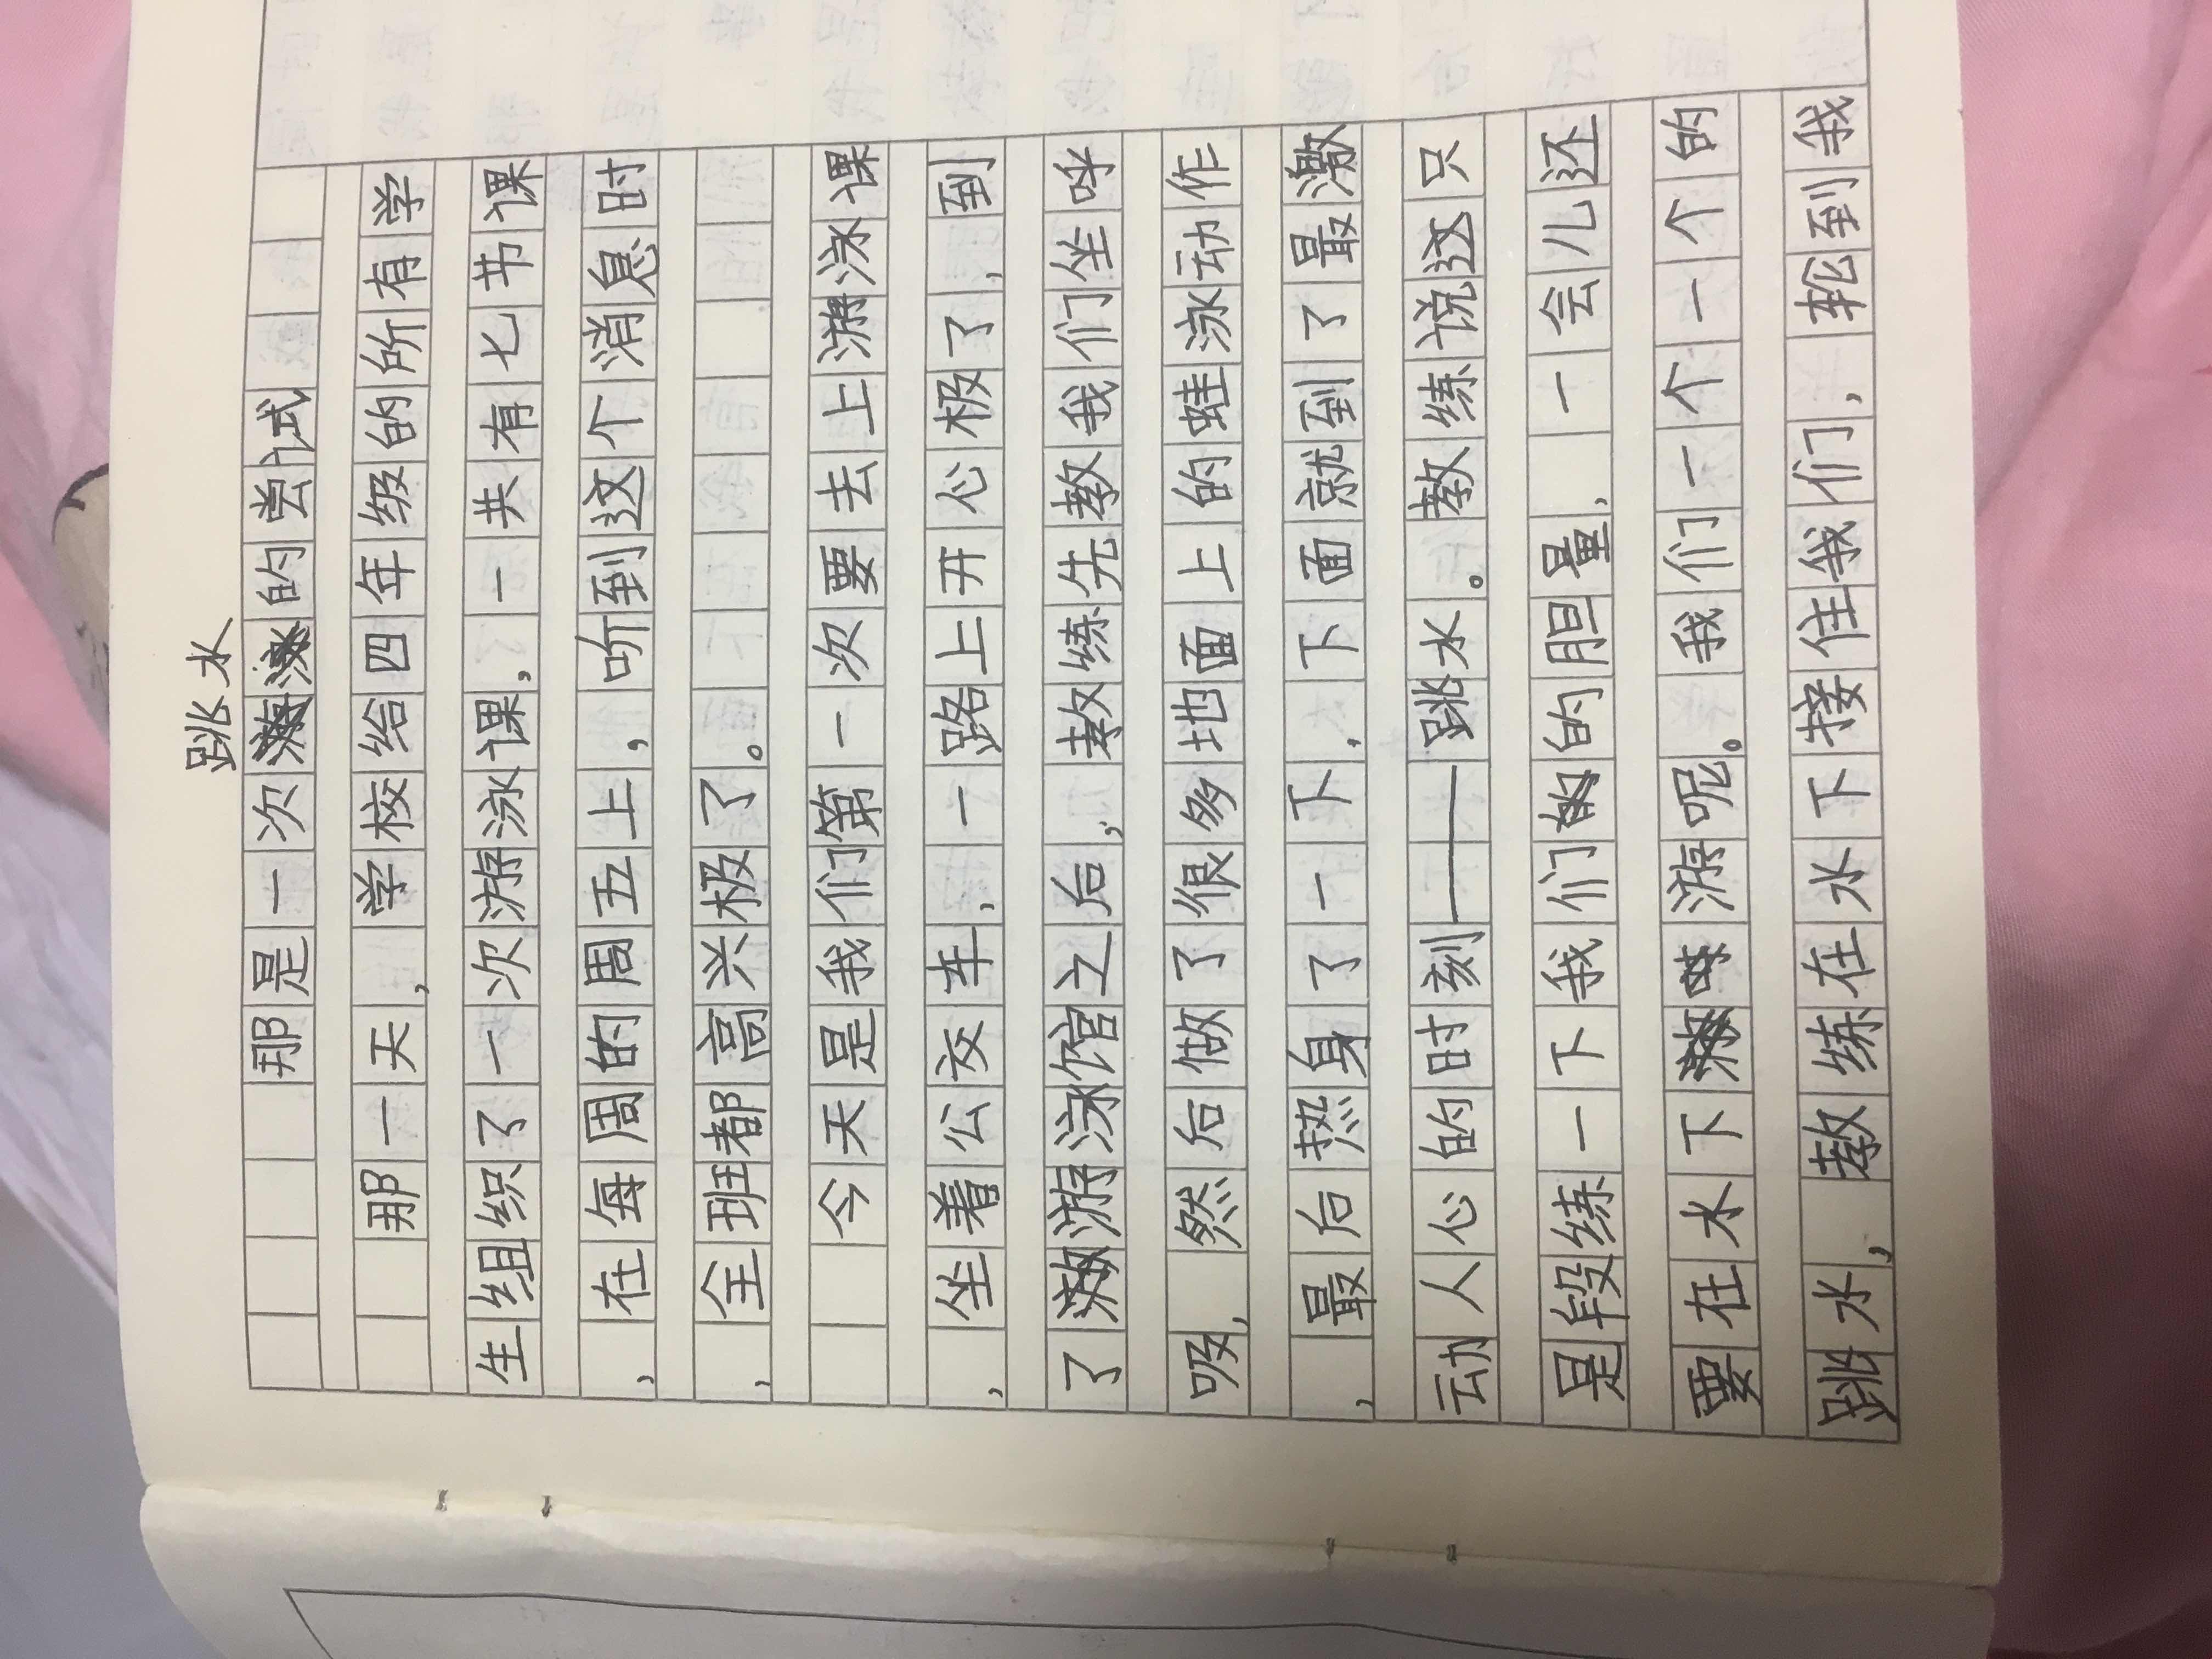 跳水
那是一次的尝试
那一天，学校给四年级的所有学
生组织了一次游泳课，一共有七节课
，在每周的周五上，听到这个消息时
，全班都高兴极了。
今天是我们第一次要去上游泳课
，坐着公交车，一路上开心极了，到
了游泳馆之后，教练先教我们坐呼
吸，然后做了很多地面上的蛙泳动作
，最后热身了一下，下面就到了最激
动人心的时刻——跳水。教练说这只
是段练一下我们的胆量，一会儿还
要在水下游呢。我们一个一个的
跳水，教练在水下接住我们，轮到我